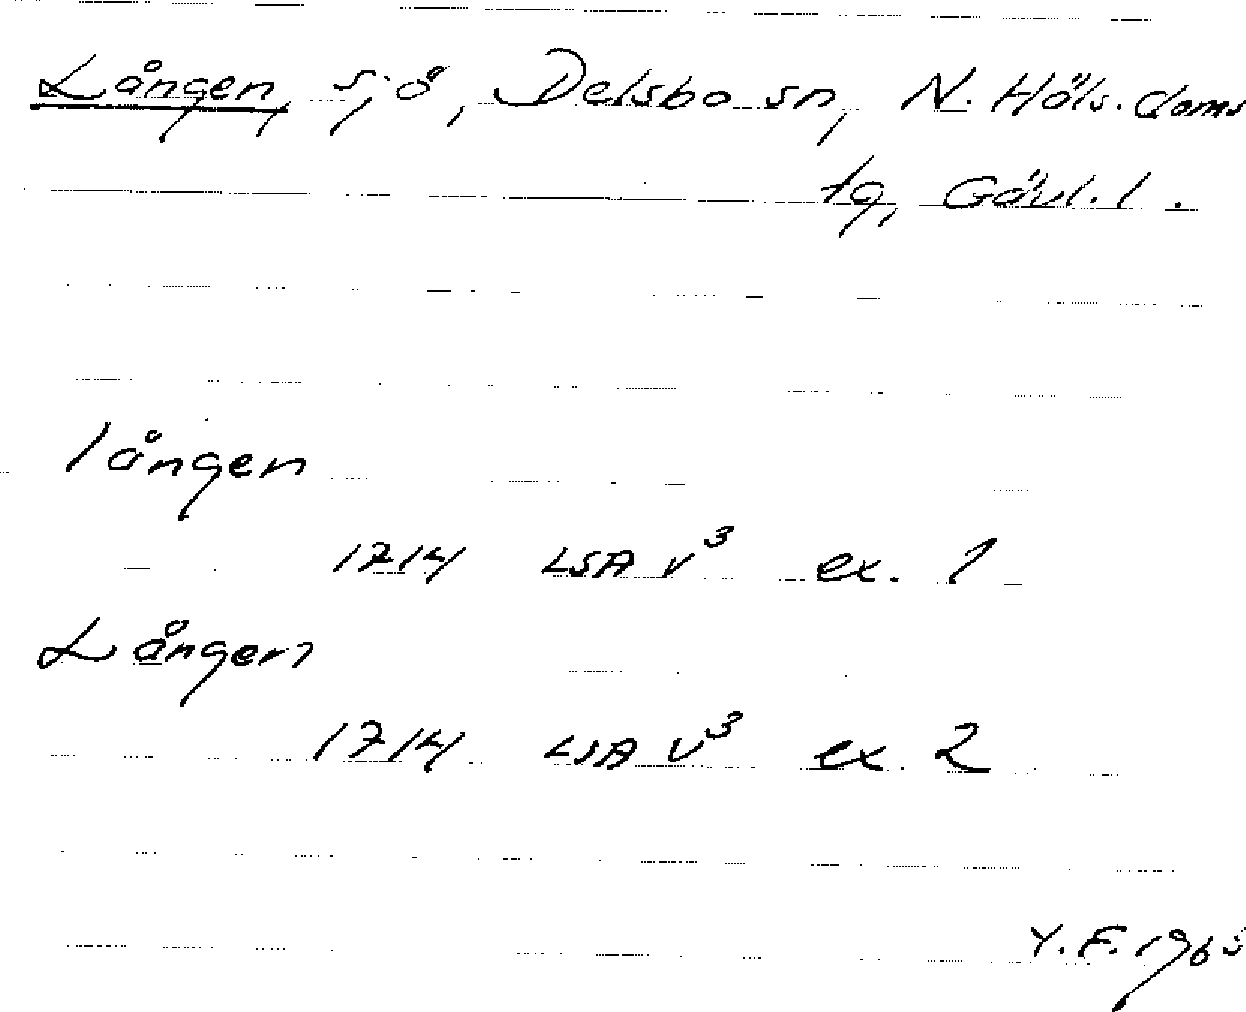 Lången, sjö, Delsbo sn, N. Häls. doms
tg, Gävl. l.
lången
1714 LSA V³ ex. 1
Lången
1714 LSA V³ ex. 2
Y. F. 1965